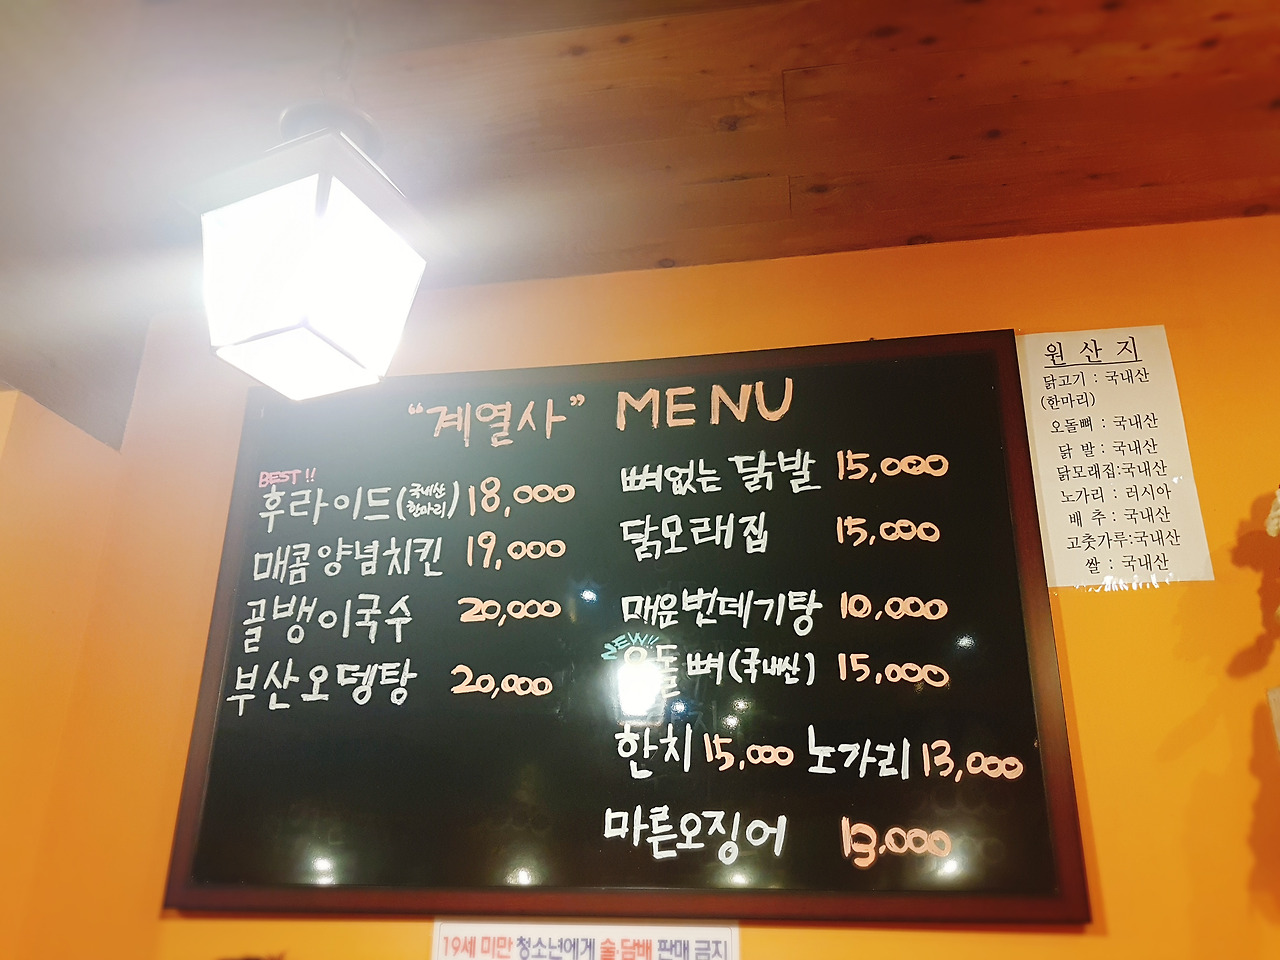 “계열사” MENU
BEST !!
후라이드(국내산 한마리) 18,000
매콤양념치킨 19,000
골뱅이국수 20,000
부산오뎅탕 20,000
뼈없는 닭발 15,000
닭모래집 15,000
매운번데기탕 10,000
NEW!!
오돌뼈(국내산) 15,000
한치 15,000 노가리 13,000
마른오징어 13,000
원산지
닭고기 : 국내산
(한마리)
오돌뼈 : 국내산
닭 발 : 국내산
닭모래집:국내산
노가리 : 러시아
배 추 : 국내산
고춧가루:국내산
쌀 : 국내산
19세 미만 청소년에게 술·담배 판매 금지